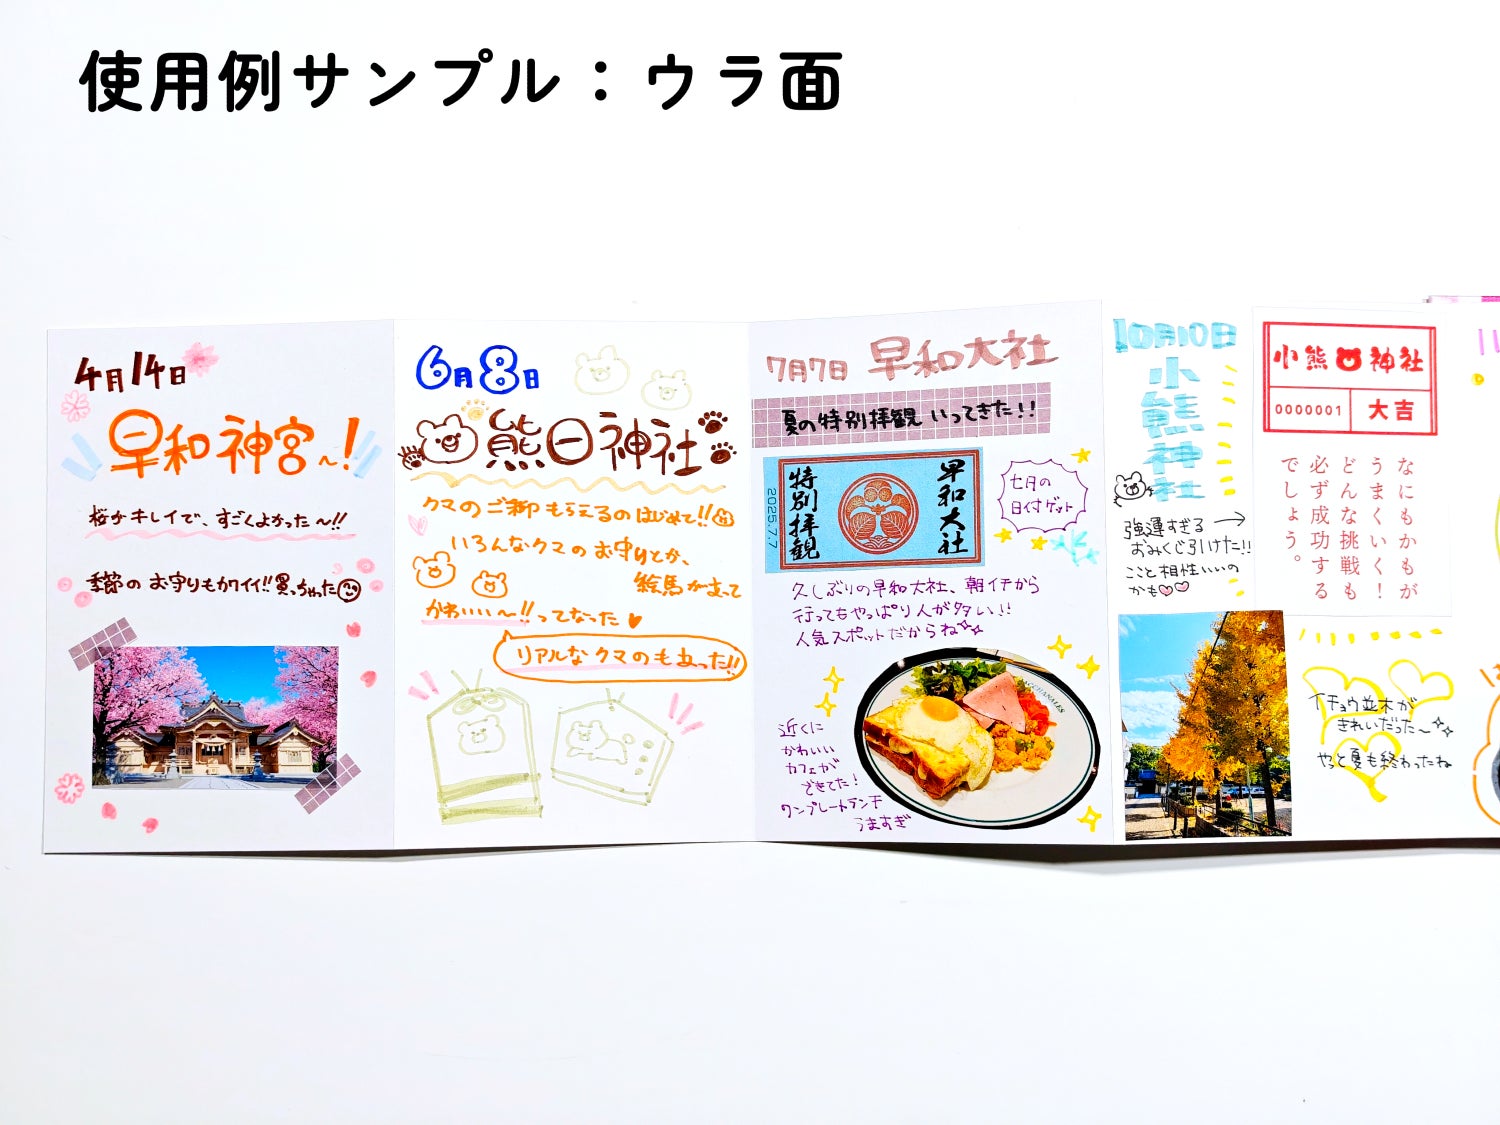 使用例サンプル：ウラ面
4月14日
早和神宮〜！
桜がキレイで、すごくよかった〜!!
季節の お守りもカワイイ!! 買っちゃった
6月8日
熊日神社
クマのご御朱印もらえるのはじめて!!
いろんなクマの お守りとか、
絵馬があって
かわいい〜!! ってなった
リアルなクマのもあった!!
7月7日 早和大社
夏の特別拝観 いってきた!!
早和大社
特別拝観
2025.7.7
七月の
日付ゲット
久しぶりの早和大社、朝イチから
行ってもやっぱり人が多い!!
人気スポットだからね
近くに
かわいい
カフェが
できてた！
ワンプレートランチ
うますぎ
10月10日
小熊神社
強運すぎる →
おみくじ引けた!!
ここと相性いいの
かも
小熊神社
0000001 大吉
なにもかもが
うまくいく！
どんな挑戦も
必ず成功する
でしょう。
イチョウ並木が
きれいだった〜
やっと夏も終わったね